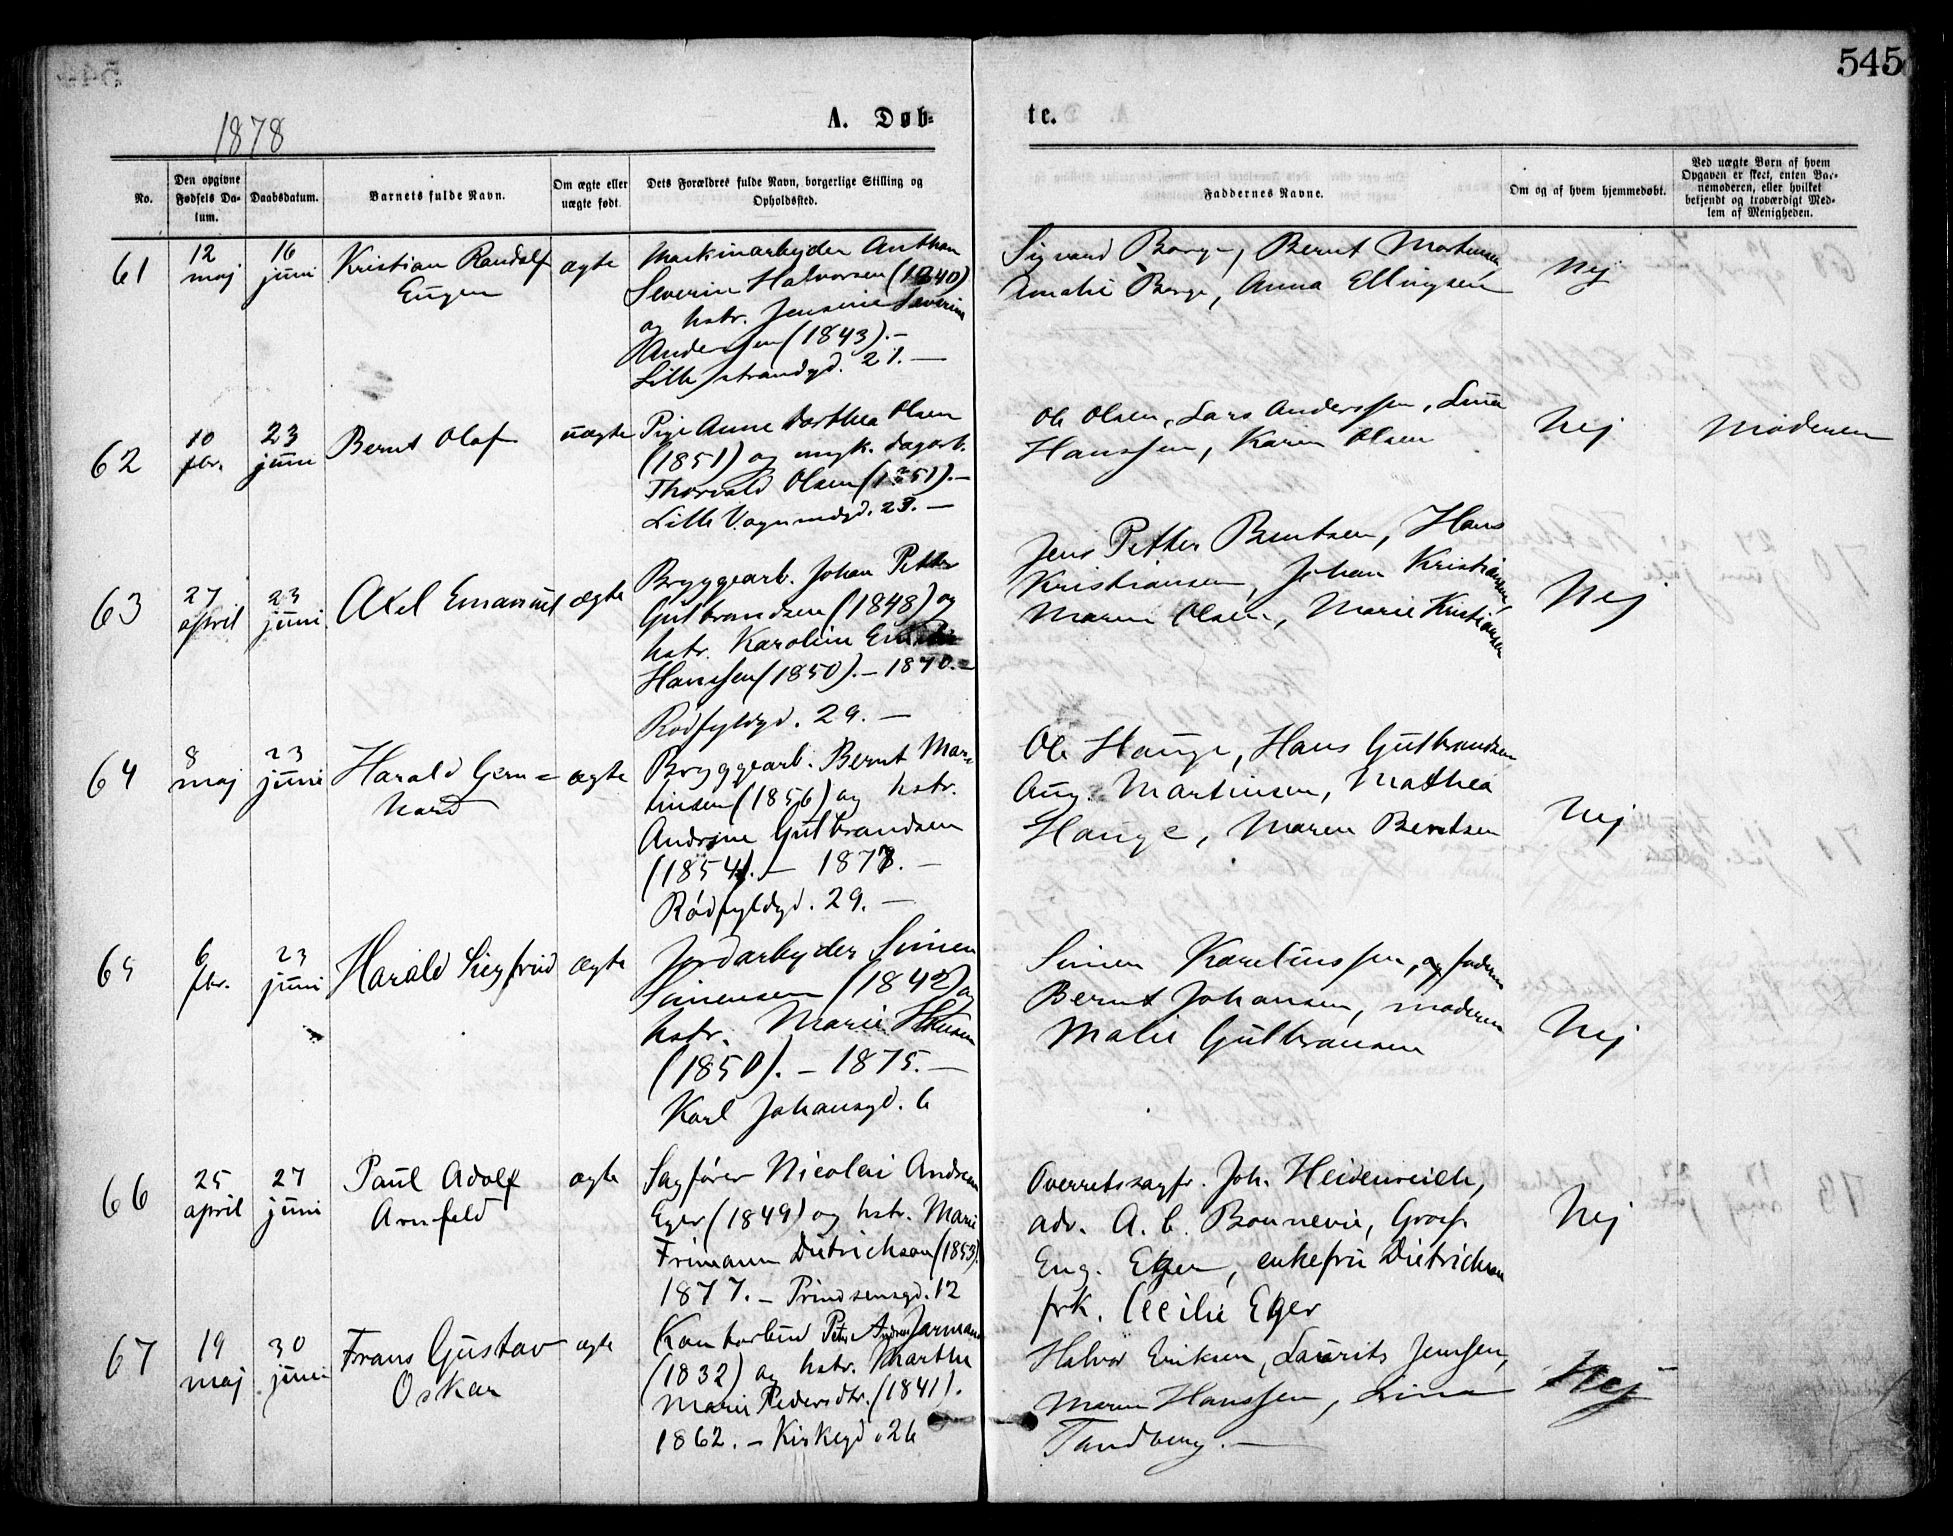 545
1878
A. Døb-
te.
No.
Den opgivne Fødsels Da-tum.
Daabsdatum.
Barnets fulde Navn.
Om ægte eller uægte født.
Dets Forældres fulde Navn, borgerlige Stilling og Opholdssted.
Faddernes Navne.
Om og af hvem hjemmedøbt.
Ved uægte Børn af hvem Opgaven er skeet, enten Bar-nemoderen, eller hvilket bekjendt og troværdigt Med-lem af Menigheden.
61
12 maj
16 juni
Kristian Randolf
Eugen
ægte
Maskinarbejder Anthon
Severin Halvorsen (1840)
og hstr. Jensine Severine
Anderssen (1843).-
Lille strandgd. 21. -
Sigvard Borge, Bernt Mortensen,
Amalie Borge, Anna Ellingsen
Nej
62
10 fbr.
23 juni
Bernt Olaf
uægte
Pige Anne Dorthea Olsen
(1851) og ungk. dagarb.
Thorvald Olsen (1851).-
Lille Vognmdgd. 23. -
Ole Olsen, Lars Anderssen, Lina
Hanssen, Karen Olsen
Nej
Moderen
63
27 april
23 juni
Axel Emanuel
ægte
Bryggearb. Johan Petter
Gulbrandsen (1848) og
hstr. Karoline
Hanssen (1850). - 1870.-
Rødfyldgd. 29. -
Jens Petter Berntsen, Hans
Kristiansen, Johan Kristiansen,
Maren Olsen, Marie Kristiansen
Nej
64
8 maj
23 juni
Harald Gern=
hard
ægte
Bryggearb. Bernt Mar-
tinsen (1856) og hstr.
Andrine Gulbrandsen
(1854). - 1878. -
Rødfyldgd. 29. -
Ole Hauge, Hans Gulbrandsen
Aug. Martinsen, Mathea
Hauge, Maren Berntsen
Nej
65
6 fbr.
23 juni
Harald Siegfried
ægte
Jordarbejder Simen
Simensen (1842) og
hstr. Marie Hansen
(1850). - 1875. -
Karl Johansgd. 6
Simen Karelinssen, og faderen
Bernt Johansen, moderen
Malie Gulbransen
Nej
66
25 april
27 juni
Paul Adolf
Arnfeld
ægte
Sagfører Nicolai Andresen
Eger (1849) og hstr. Marie
Frimann Dietrichson (1853).
1877. - Prindsensgd. 12
Overretssagfr. Joh. Heidenreich,
adv. A. C. Bonnevie, Gross.
Eng. Eger, enkefru Dietrichson
frk. Cecilie Eger
Nej
67
19 maj
30 juni
Frans Gustav
Oskar
ægte
Kontorbud Peter Andreas Jarmann
(1832) og hstr. Marthe
Marie Pedersdtr. (1841).
1862. - Kirkegd. 26
Halvor Eriksen, Laurits Jenssen,
Maren Hanssen, Lina
Tandberg. -
Nej